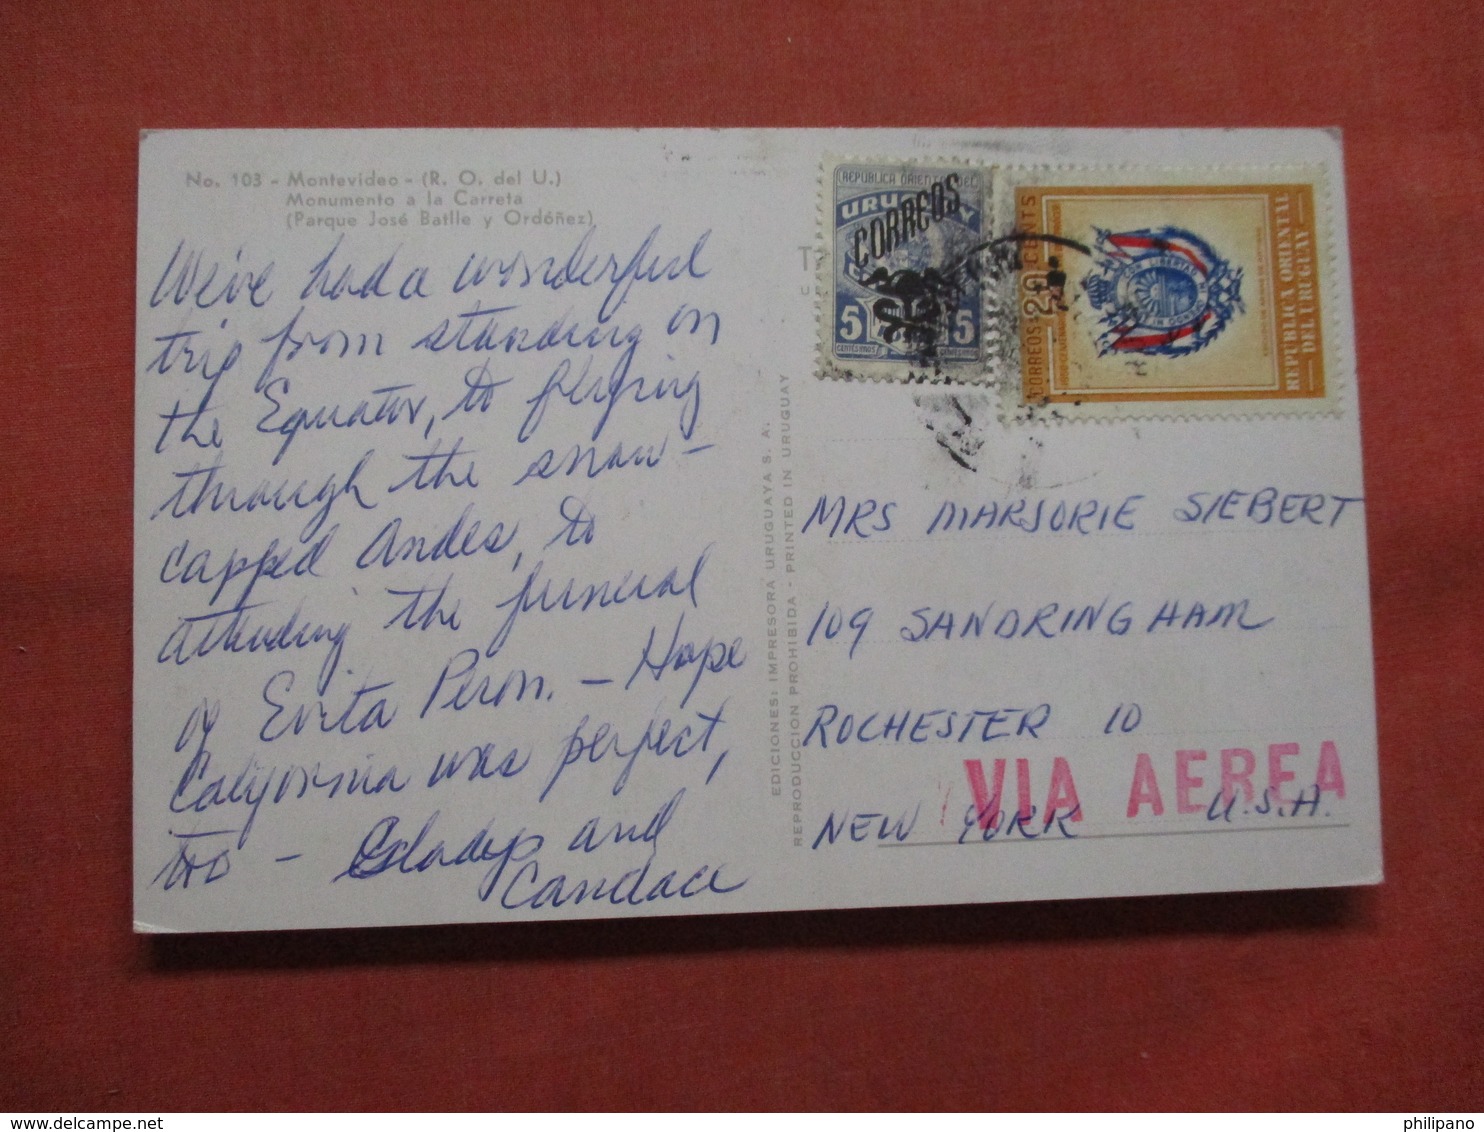 No. 103 - Montevideo - (R. O. del U.)
Monumento a la Carreta
(Parque José Batlle y Ordóñez)
We've had a wonderful
trip from standing on
the Equator, to flying
through the snow-
capped Andes, to
attending the funeral
of Evita Peron. - Hope
California was perfect,
too - Gladys and
Candace
EDICIONES: IMPRESORA URUGUAYA S. A.
REPRODUCCION PROHIBIDA - PRINTED IN URUGUAY
REPUBLICA ORIENTAL DEL
URUGUAY
CORREOS
5 5
CENTESIMOS CENTESIMOS
CORREOS 20 CENTS
REPUBLICA ORIENTAL
DEL URUGUAY
CON LIBERTAD NI
MRS MARJORIE SIEBERT
109 SANDRINGHAM
ROCHESTER 10
VIA AEREA
NEW YORK U.S.A.
philipano